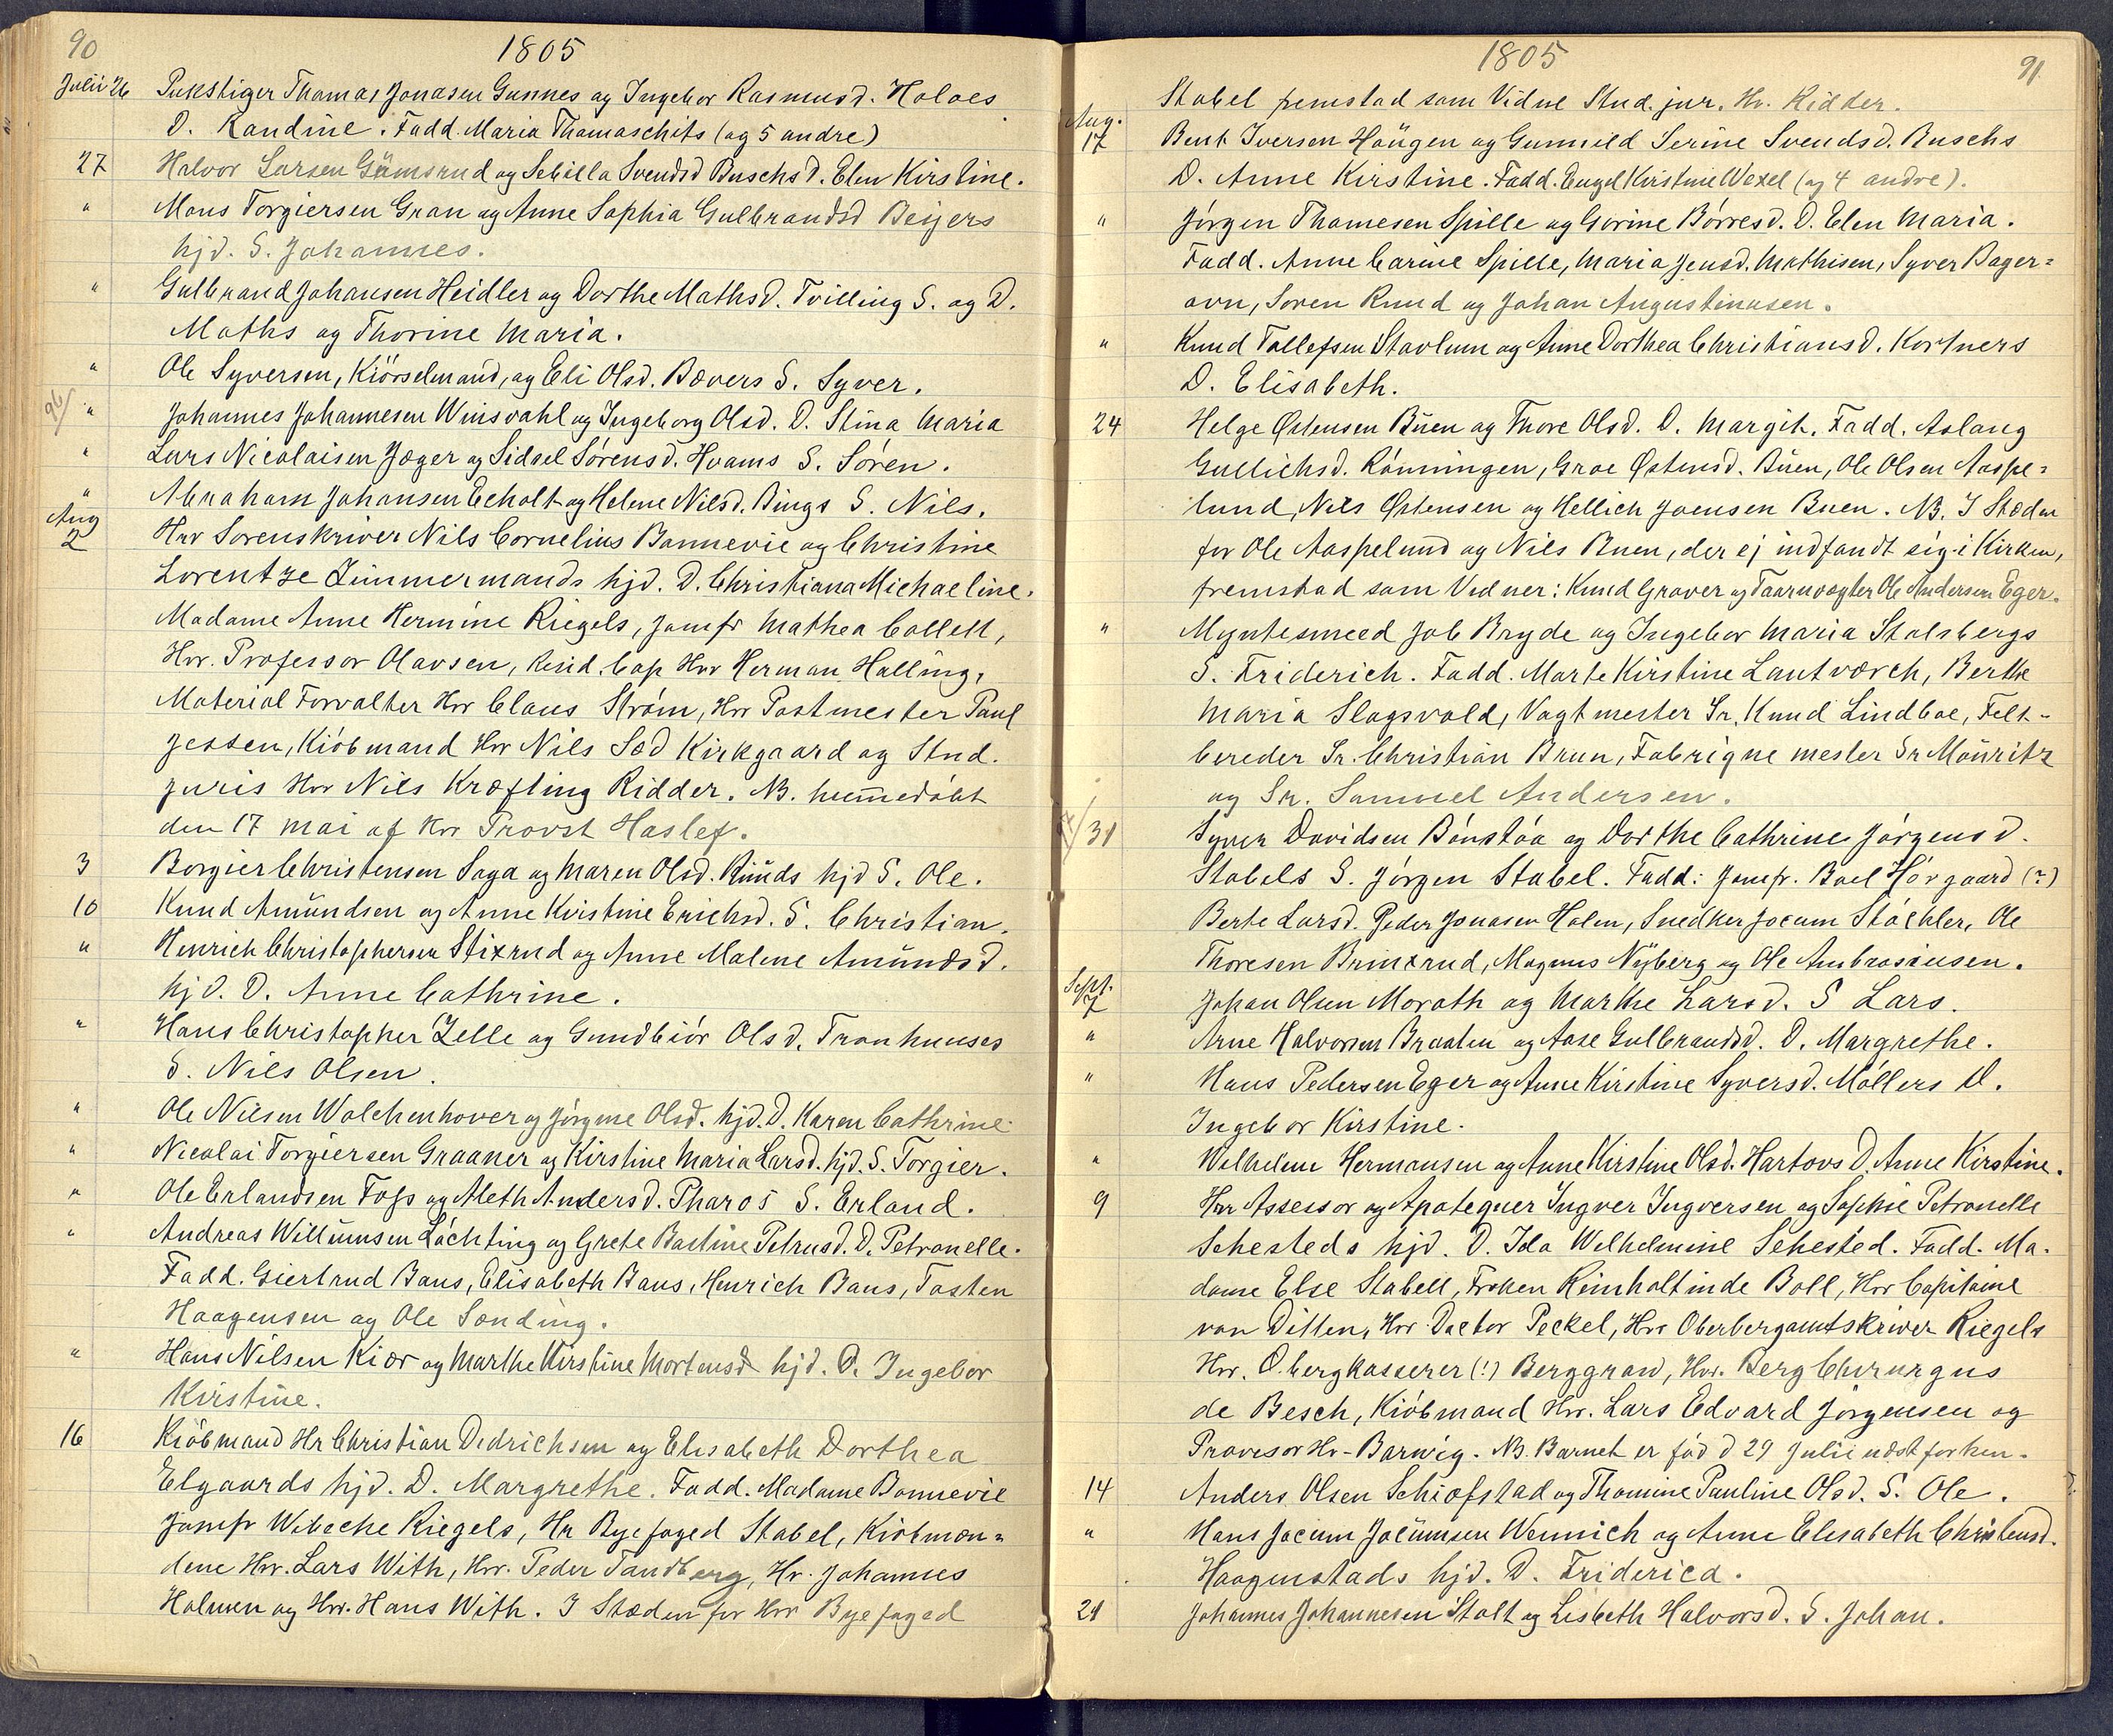 90
1805
Julii 26 Pukstiger Thomas Jonasen Gunnes og Ingebor Rasmusd. Holoes
D. Randine. Fadd. Maria Thomaschits (og 5 andre)
27 Halvor Larsen Gümsrud og Sebilla Svendsd Buschs D. Elen Kirstine.
" Mons Torgiersen Gran og Anne Sophia Gulbrandsd Beijers
hjd. S. Johannes.
" Gulbrand Johansen Heidler og Dorthe Mathsd. Tvilling S. og D.
Maths og Thorine Maria.
" Ole Syversen, Kiörselmand, og Eli Olsd. Bævers S. Syver.
96/ " Johannes Johannesen Winsvahl og Ingeborg Olsd. D. Stina Maria
" Lars Nicolaisen Jæger og Sidsel Sörensd. Hvams S. Sören.
" Abraham Johansen Echolt og Helene Nilsd. Bings S. Nils.
Aug 2 Hrr Sorenskriver Nils Cornelius Bonnevie og Christine
Lorentze Zimmermands hjd. D. Christiana Michaeline.
Madame Anne Hermine Riegels, Jomfr Mathea Collett,
Hrr. Professor Olavsen, Resid. Cap Hrr Herman Halling,
Material Forvalter Hrr Claus Ström, Hrr Postmester Paul
Jessen, Kiöbmand Hrr Nils Sæd Kirkgaard og Stud.
juris Hrr Nils Kræfting Ridder. NB. hiem̅edöbt
den 17 Mai af Hrr Provst Haslef.
3 Borgier Christensen Saga og Maren Olsd. Rüüds hjd S. Ole.
10 Knud Amündsen og Anne Kirstine Erichsd. S. Christian.
" Henrich Christophersen Stixrud og Anne Malene Amündsd.
hjd. D. Anne Cathrine.
" Hans Christopher Zelle og Gundbiör Olsd. Tronhuuses
S. Nils Olsen.
" Ole Nilsen Walchenhover og Jörgine Olsd. hjd. D. Karen Cathrine
" Nicolai Torgiersen Graaner og Kirstine Maria Larsd. hjd. S. Torgier.
" Ole Erlandsen Foss og Aleth Andersd. Pharos S. Erland.
" Andreas Willumsen Löchting og Grete Bastine Petrusd. D. Petronelle.
Fadd. Giertrud Baus, Elisabeth Baus, Henrich Baus, Tosten
Haagensen og Ole Sønding.
" Hans Nilsen Kiær og Marthe Kirstine Mortensd hjd. D. Ingebor
Kirstine.
16 Kiöbmand Hr Christian Didrichsen og Elisabeth Dorthea
Elgaards hjd. D. Margrethe. Fadd. Madame Bonnevie
Jomfr Wibeche Riegels, Hr Byefoged Stabel, Kiöbmæn=
dene Hrr. Lars With, Hrr. Peder Tandberg, Hr. Johannes
Holmen og Hrr. Hans With. I Stæden for Hrr Byefoged
1805
91
Stabel fremstod som Vidne Stud. jur. Hr. Ridder.
Aug. 17 Bent Iversen Haugen og Gunnild Serine Svendsd. Buschs
D. Anne Kirstine. Fadd. Engel Kirstine Wexel (og 4 andre).
" Jörgen Thomesen Spille og Gorine Börresd. D. Elen Maria.
Fadd. Anne Carine Spille, Maria Jensd. Mathisen, Syver Bager=
ovn, Soren Ruud og Johan Augustinusen.
" Knud Tollefsen Stavlum og Anne Dorthea Christiansd. Kortners
D. Elisabeth.
24 Helge Østensen Büen og Thore Olsd. D. Margit. Fadd. Aslaug
Gullichsd. Rönningen, Groe Østensd. Büen, Ole Olsen Aaspe=
lund, Nils Østensen og Hellich Joensen Buen. NB. I Stæden
for Ole Aaspelund og Nils Buen, der ej indfandt sig i Kirken,
fremstod som Vidner: Knud Graver og Taarnvogter Ole Andersen Eger.
" Myntesmed Job Bryde og Ingebor Maria Stolsbergs
S. Friderich. Fadd. Marte Kirstine Lantværch, Berthe
Maria Slagsvold, Vagtmester Sr. Knud Lindboe, Felt-
bereder Sr. Christian Brun, Fabriqne mester Sr Mouritz
og Sr. Samuel Andersen.
31 Syver Davidsen Bönstöa og Dorthe Cathrine Jörgensd.
Stabels S. Jörgen Stabel. Fadd: Jomfr. Boel Hörgaard (?)
Berte Larsd. Peder Jonasen Holen, Snedker Jocum Stöchler, Ole
Thoresen Brinxrud, Magnus Nÿberg og Ole Ambrosiusen.
Sept. 7 Johan Olsen Morath og Marthe Larsd. S Lars.
" Arne Halvorsen Braaten og Aase Gulbrandsd. D. Margrethe.
" Hans Pedersen Eger og Anne Kirstine Syversd. Möllers D.
Ingebor Kirstine.
" Wilhelm Hermansen og Anne Kirstine Olsd. Hartovs D. Anne Kirstine.
9 Hrr Assessor og Apotequer Ingver Ingversen og Sophie Petronelle
Sehesteds hjd. D. Ida Wilhelmine Sehested. Fadd. Ma-
dame Else Stabell, Froken Reinholtinde Boll, Hrr Capitaine
von Ditten, Hrr Doctor Peckel, Hrr Oberbergamtskriver Riegels
Hrr. O.bergkasserer (!) Berggraw, Hrr. Berg Chirurgus
de Besch, Kiöbmand Hrr. Lars Edvard Jörgensen og
Provisor Hr. Barwig. NB. Barnet er föd d 29 Julii næst forhen.
14 Anders Olsen Schiøfstad og Thomine Pauline Olsd. S. Ole.
" Hans Jocum Jocümsen Wennich og Anne Elisabeth Christensd.
Haagenstads hjd. D. Friderica.
21 Johannes Johannesen Stolt og Lisbeth Halvorsd. S. Johan.